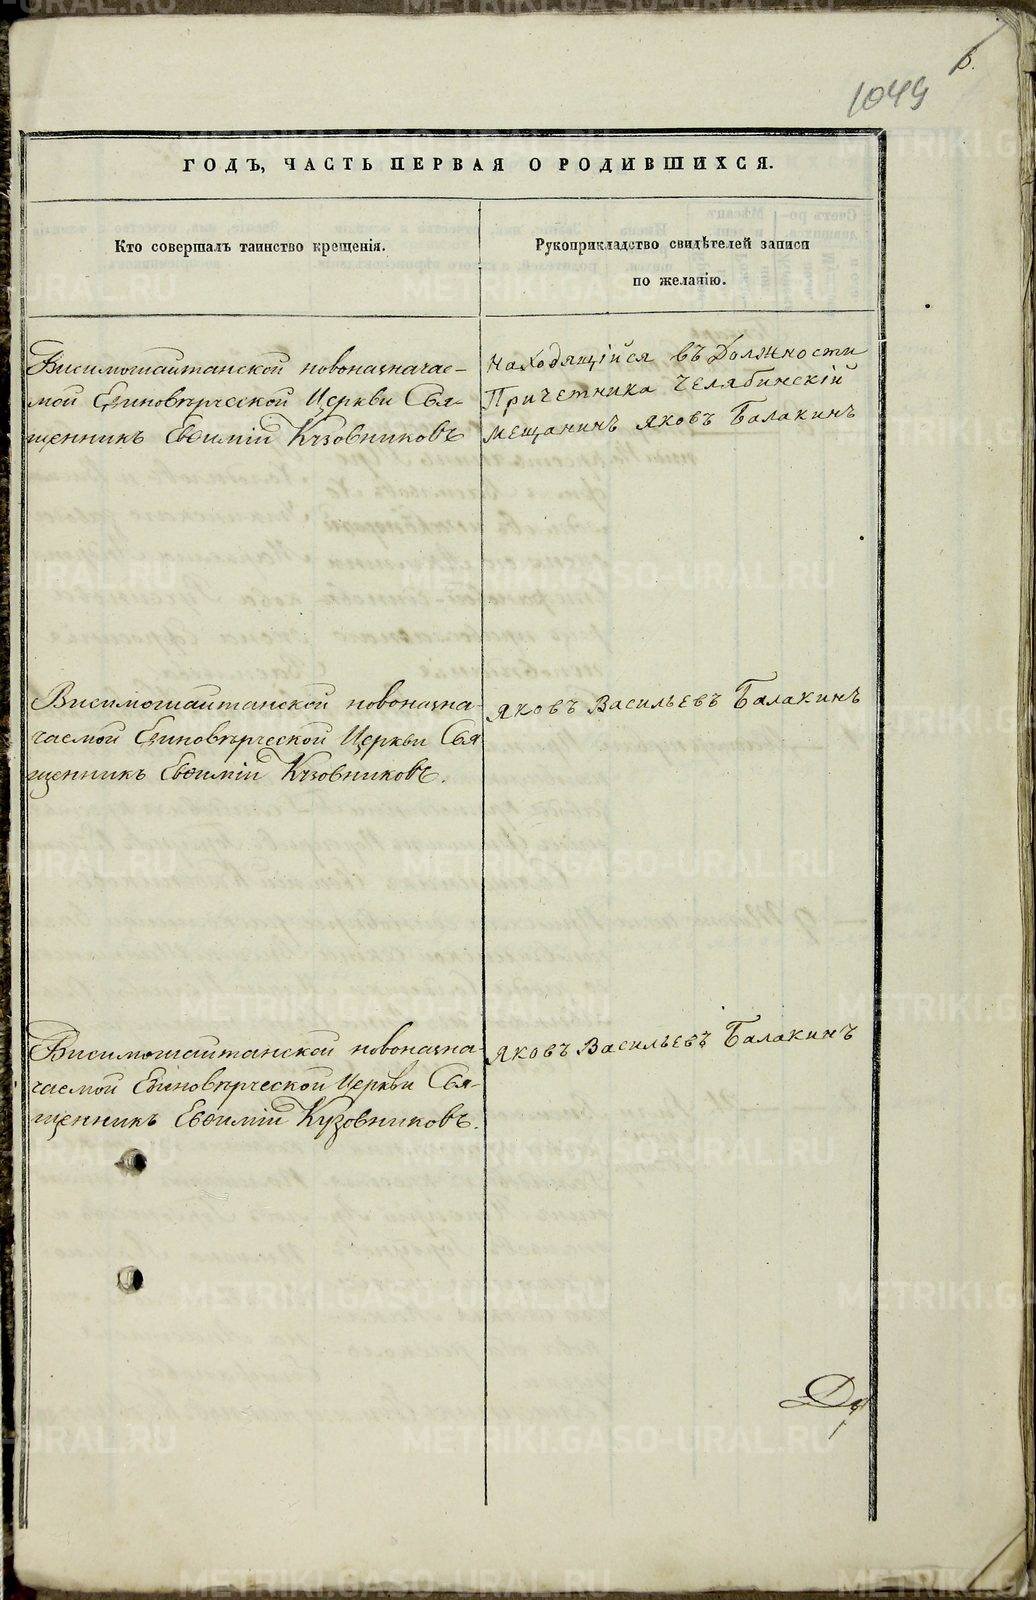 1049
ГОДЪ, ЧАСТЬ ПЕРВАЯ О РОДИВШИХСЯ.
Кто совершалъ таинство крещенія.
Рукоприкладство свидѣтелей записи
по желанію.
Висимошайтанской новоназначае-
мой Единовѣрческой Церкви Свя-
щенникъ Евѳимій Кузовниковъ
Находящійся въ Должности
Причетника Челябинскій
мещанинъ Яковъ Балакинъ
Висимошайтанской новоназна-
чаемой Единовѣрческой Церкви Свя
щенникъ Евѳимій Кузовниковъ.
Яковъ Васильевъ Балакинъ
Висимошайтанской новоназна-
чаемой Единовѣрческой Церкви Свя-
щенникъ Евѳимій Кузовниковъ.
Яковъ Васильевъ Балакинъ
METRIKI.GASO-URAL.RU